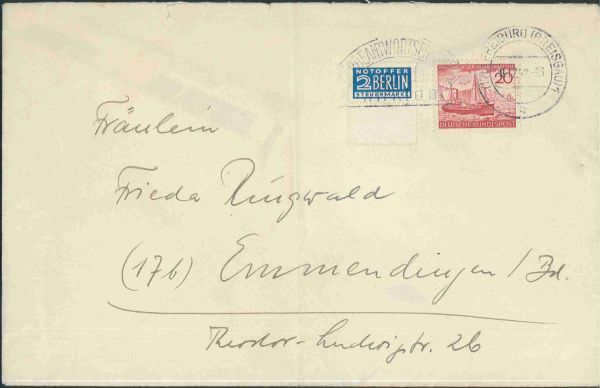 NOTOPFER
2 BERLIN
STEUERMARKE
20
DEUTSCHE BUNDESPOST
FREIBURG (BREISGAU) 1
Fräulein
Frieda Ringwald
(17b) Emmendingen / Bd.
Theodor-Ludwigstr. 26